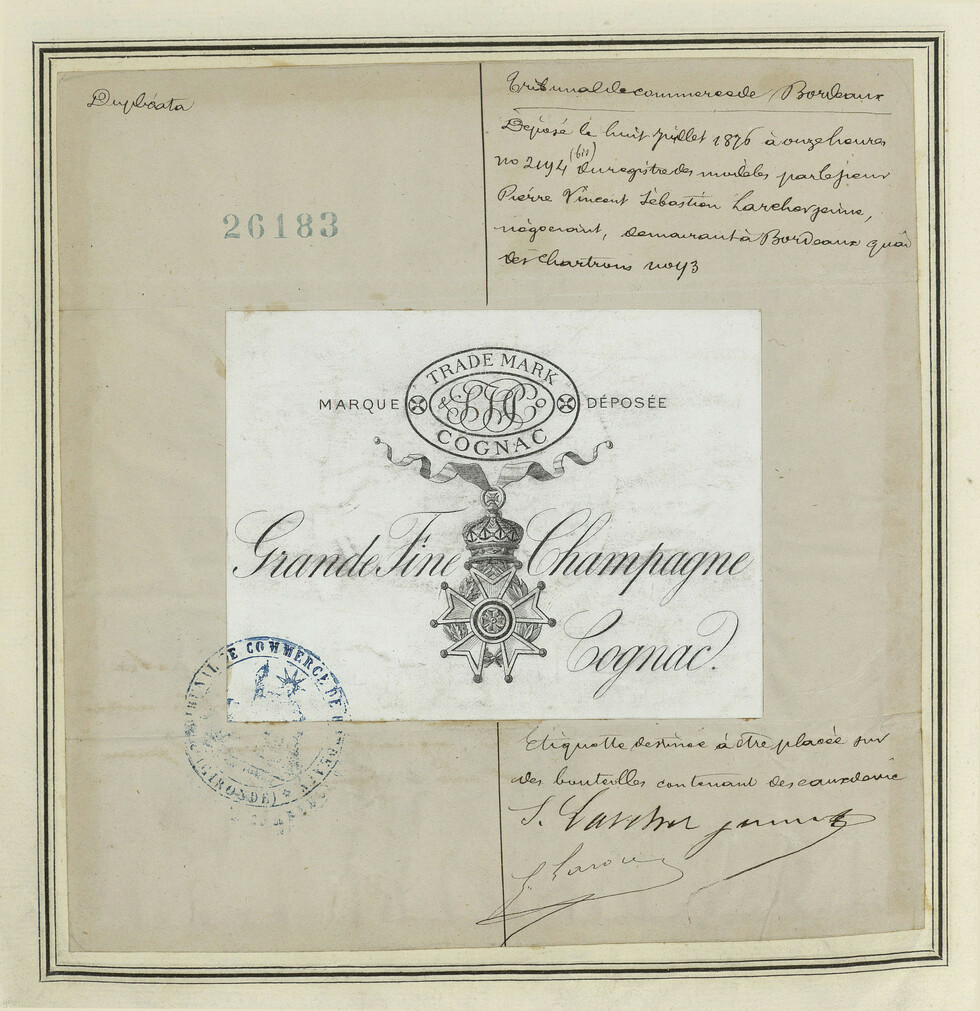 Duplicata
26183
Tribunal de commerce de Bordeaux
Déposé le huit juillet 1876 à onze heures
no 2194 (bis) du registre des modèles par le sieur
Pierre Vincent Sébastien Larcher jeune,
négociant, demeurant à Bordeaux quai
des Chartrons no 43
TRADE MARK
MARQUE DÉPOSÉE
COGNAC
Grande Fine Champagne
Cognac.
TRIBUNAL DE COMMERCE DE BORDEAUX
(GIRONDE)
Etiquette destinée à être placée sur
des bouteilles contenant des eaux de vie
S. Larcher jeune